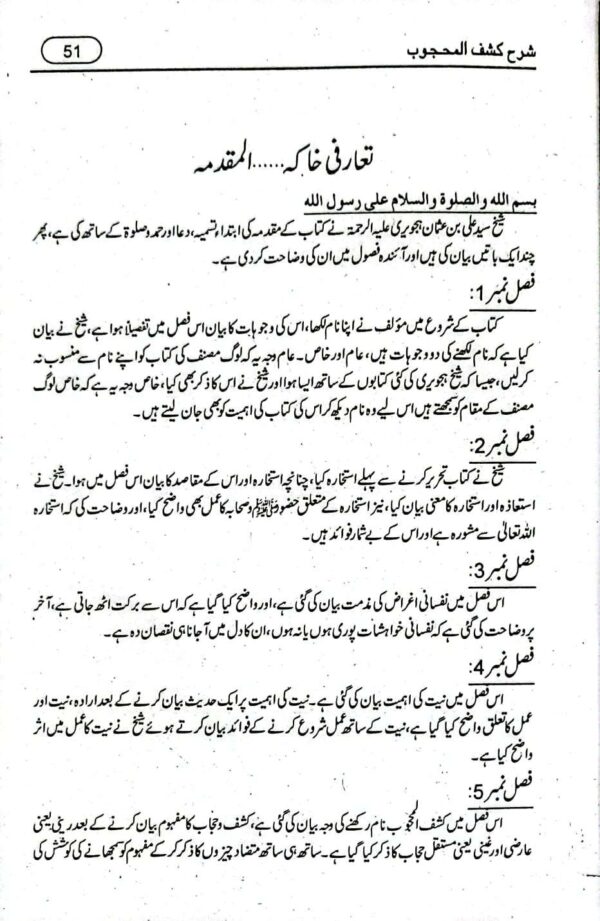 شرح کشف المحجوب
51
تعارفی خاکہ......المقدمہ
بسم الله والصلوة والسلام علی رسول الله
شیخ سید علی بن عثمان ہجویری علیہ الرحمۃ نے کتاب کے مقدمہ کی ابتداء تسمیہ، دعا اور حمد وصلوۃ کے ساتھ کی ہے، پھر
چند ایک باتیں بیان کی ہیں اور آئندہ فصول میں ان کی وضاحت کر دی ہے۔
فصل نمبر 1:
کتاب کے شروع میں مؤلف نے اپنا نام لکھا، اس کی وجوہات کا بیان اس فصل میں تفصیلاً ہوا ہے، شیخ نے بیان
کیا ہے کہ نام لکھنے کی دو وجوہات ہیں، عام اور خاص۔ عام وجہ یہ کہ لوگ مصنف کی کتاب کو اپنے نام سے منسوب نہ
کر لیں، جیسا کہ شیخ ہجویری کی کئی کتابوں کے ساتھ ایسا ہوا اور شیخ نے اس کا ذکر بھی کیا، خاص وجہ یہ ہے کہ خاص لوگ
مصنف کے مقام کو سمجھتے ہیں اس لیے وہ نام دیکھ کر اس کی کتاب کی اہمیت کو بھی جان لیتے ہیں۔
فصل نمبر 2:
شیخ نے کتاب تحریر کرنے سے پہلے استخارہ کیا، چنانچہ استخارہ اور اس کے مقاصد کا بیان اس فصل میں ہوا۔ شیخ نے
استعاذہ اور استخارہ کا معنی بیان کیا، نیز استخارہ کے متعلق حضور ﷺ و صحابہ کا عمل بھی واضح کیا، اور وضاحت کی کہ استخارہ
اللہ تعالٰی سے مشورہ ہے اور اس کے بے شمار فوائد ہیں۔
فصل نمبر 3:
اس فصل میں نفسانی اغراض کی مذمت بیان کی گئی ہے، اور واضح کیا گیا ہے کہ اس سے برکت اٹھ جاتی ہے، آخر
پر وضاحت کی گئی ہے کہ نفسانی خواہشات پوری ہوں یا نہ ہوں، ان کا دل میں آجانا ہی نقصان دہ ہے۔
فصل نمبر 4:
اس فصل میں نیت کی اہمیت بیان کی گئی ہے۔ نیت کی اہمیت پر ایک حدیث بیان کرنے کے بعد ارادہ، نیت اور
عمل کا تعلق واضح کیا گیا ہے، نیت کے ساتھ عمل شروع کرنے کے فوائد بیان کرتے ہوئے شیخ نے نیت کا عمل میں اثر
واضح کیا ہے۔
فصل نمبر 5:
اس فصل میں کشف المحجوب نام رکھنے کی وجہ بیان کی گئی ہے، کشف وحجاب کا مفہوم بیان کرنے کے بعد رینی یعنی
عارضی اور غینی یعنی مستقل حجاب کا ذکر کیا گیا ہے۔ ساتھ ہی ساتھ متضاد چیزوں کا ذکر کر کے مفہوم کو سمجھانے کی کوشش کی